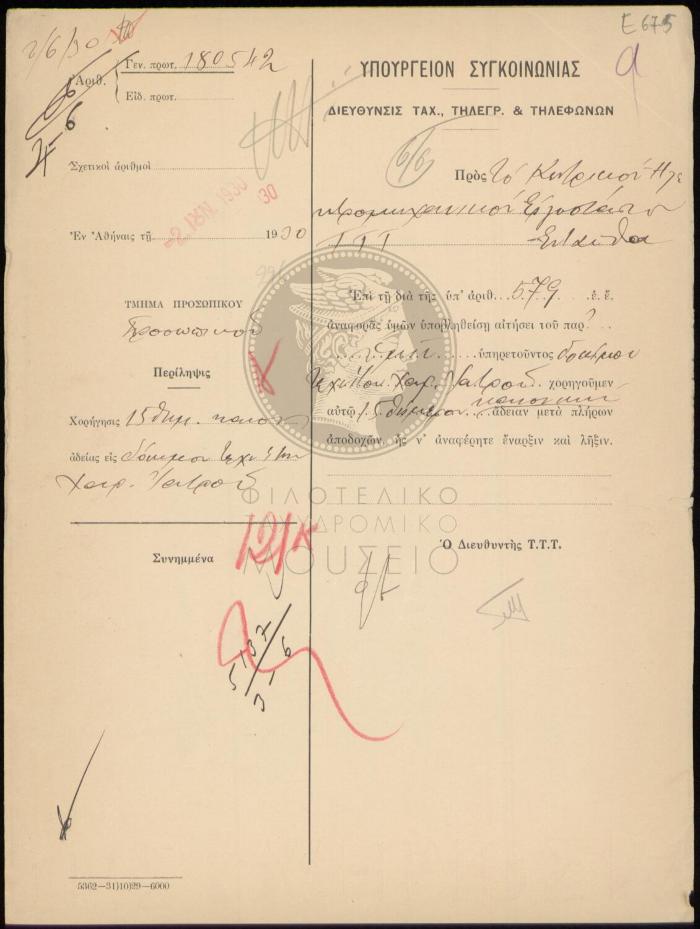 2/6/30
Ε 675
9
Ἀριθ.
Γεν. πρωτ. 180542
Εἰδ. πρωτ.
4-6
Σχετικοὶ ἀριθμοὶ
-2 ΙΟΥΝ. 1930
30
Ἐν Ἀθήναις τῇ 1930
ΤΜΗΜΑ ΠΡΟΣΩΠΙΚΟΥ
Προσωπικοῦ
Περίληψις
Χορήγησις 15θημ. κανον.
ἀδείας εἰς δόκιμον τεχνίτην
Χαρ. Ἰατροῦ
Συνημμένα
12/Κ
5137
3-6
5362—31)10)29—6000
ΥΠΟΥΡΓΕΙΟΝ ΣΥΓΚΟΙΝΩΝΙΑΣ
ΔΙΕΥΘΥΝΣΙΣ ΤΑΧ., ΤΗΛΕΓΡ. & ΤΗΛΕΦΩΝΩΝ
6/6
Πρὸς τό Κεντρικόν Ηλε
κτρομηχανικόν Εργοστάσιον
Τ Τ Τ
Ενταύθα
Ἐπὶ τῇ διὰ τῆς ὑπ' ἀριθ. 579 ἐ. ἔ.
ἀναφορᾶς ὑμῶν ὑποβληθείσῃ αἰτήσει τοῦ παρ'
ὑμῖν ὑπηρετοῦντος δοκίμου
τεχνίτου Χαρ. Ἰατροῦ χορηγοῦμεν
αὐτῷ 15θήμερον κανονικήν ἄδειαν μετὰ πλήρων
ἀποδοχῶν, ἧς ν' ἀναφέρητε ἔναρξιν καὶ λῆξιν.
Ὁ Διευθυντὴς Τ.Τ.Τ.
ΦΙΛΟΤΕΛΙΚΟ
ΤΑΧΥΔΡΟΜΙΚΟ
ΜΟΥΣΕΙΟ